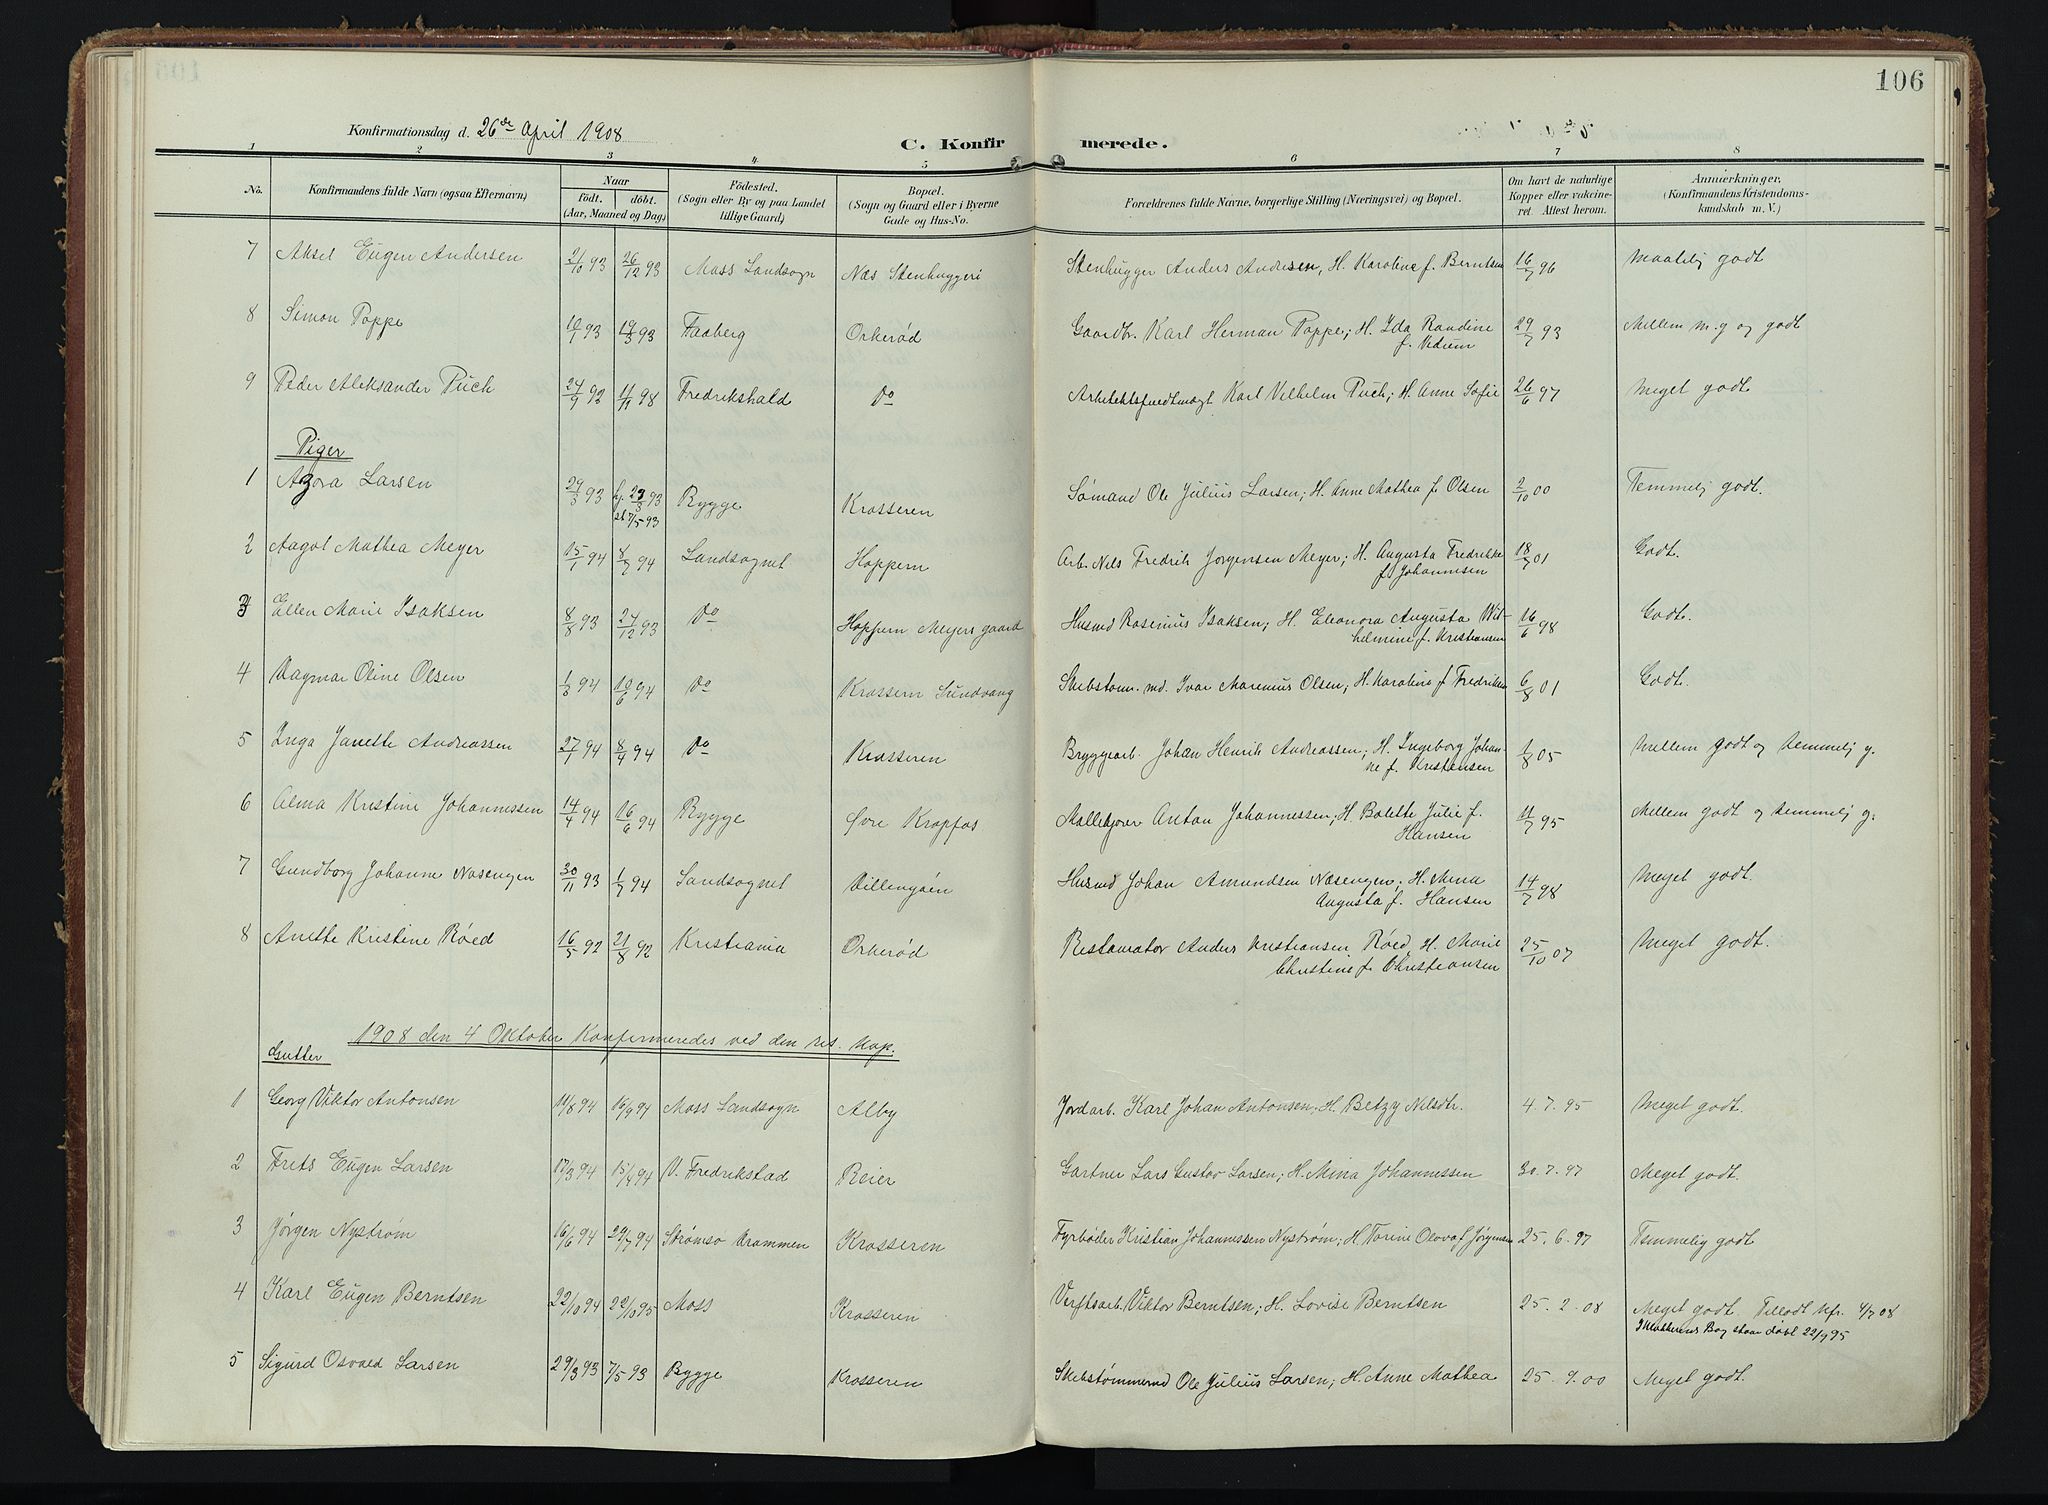 106
Konfirmationsdag d. 26de April 1908
C. Konfirmerede.
1 2 3 4 5 6 7 8
No. Konfirmandens fulde Navn (ogsaa Efternavn) Naar födt. döbt. (Aar, Maaned og Dag) Födested. (Sogn eller By og paa Landet tillige Gaard) Bopæl. (Sogn og Gaard eller i Byerne Gade og Hus-No. Forældrenes fulde Navne, borgerlige Stilling (Næringsvei) og Bopæl. Om havt de naturlige Kopper eller vakcineret. Attest herom. Anmærkninger. (Konfirmandens Kristendomskundskab m. V.)
7 Aksel Eugen Andersen 2/10 93 26/12 93 Moss Landsogn Næs Stenhuggeri Stenhugger Anders Andresen, H. Karoline f. Berntsen 16/7 96 Maatelig godt
8 Simon Poppe 10/1 93 19/3 93 Faaberg Orkerød Gaardbr. Karl Herman Poppe; H. Ida Randine 29/7 93 Mellem m.g og godt
f. Vedum
9 Peder Aleksander Puch 24/9 92 11/9 98 Fredrikshald Do Arkitektsfuldtmægt Karl Vilhelm Puch; H. Anne Sofie 26/6 97 Meget godt
Piger
1 Azora Larsen 29/3 93 hj. 29/3 93 Rygge Krosseren Sømand Ole Julius Larsen; H. Anne Mathea f. Olsen 2/10 00 Temmelig godt.
st 7/5 93
2 Aagot Mathea Meyer 15/1 94 8/7 94 Landsognet Hoppern Arb. Nils Fredrik Jørgensen Meyer; H. Augusta Fredrikke 18/7 01 Godt.
f. Johannesen
3 Ellen Marie Isaksen 8/8 93 24/12 93 Do Hoppern Meyers gaard Husmd Rasmus Isaksen; H. Eleonora Augusta Wil- 16/6 98 Godt.
helmine f. Kristiansen
4 Dagmar Oline Olsen 1/3 94 10/6 94 Do Krossern Sundvang Skibstøm. md. Ivar Marenius Olsen; H. Karoline f Fredriksen 6/8 01 Godt.
5 Inga Janette Andreassen 27/1 94 8/4 94 Do Krosseren Bryggearb. Johan Henrik Andreassen; H. Ingeborg Johan- 1/8 05 Mellem godt og temmelig g.
ne f. Kristensen
6 Alma Kristine Johannessen 14/4 94 16/6 94 Rygge Øvre Kropfos Møllekjører Anton Johannessen; H Bolette Julie f. 11/7 95 Mellem godt og temmelig g.
Hansen
7 Gundborg Johanne Nøsengen 30/11 93 1/7 94 Landsognet Dillengøen Husmd Johan Amundsen Næsengen; H. Mina 14/7 98 Meget godt.
Augusta f. Hansen
8 Anette Kristine Røed 16/5 92 21/8 92 Kristiania Orkerød Restaurator Anders Kristiansen Røed, H. Marie 25/10 07 Meget godt.
Christine f. Christiansen
1908 den 4 Oktober Konfirmeredes ved den res. Kap.
Gutter
1 Georg Viktor Antonsen 11/8 94 16/9 94 Moss Landsogn Alby Jordarb. Karl Johan Antonsen; H. Betzy Nilsdtr. 4.7.95 Meget godt.
2 Frits Eugen Larsen 17/3 94 15/4 94 V. Fredrikstad Reier Gartner Lars Gustav Larsen; H. Mina Johannessen 30.7.97 Meget godt.
3 Jørgen Nystrøm 16/6 94 29/7 94 Strømsø Drammen Krosseren Fyrbøder Kristian Johannessen Nystrøm; H Torine Olova f Jørgensen 25.6.97 Temmelig godt
4 Karl Eugen Berntsen 22/10 94 22/10 95 Moss Krosseren Verftsarb. Viktor Berntsen; H. Lovise Berntsen 25.2.08 Meget godt. Tilladt Kfr. 4/7 08
I Klokkerens Bog staar døbt 22/9 95
5 Sigurd Osvald Larsen 29/3 93 7/5 93 Rygge Krosseren Skibstømmermd Ole Julius Larsen; H. Anne Mathea 25.9.00 Meget godt.